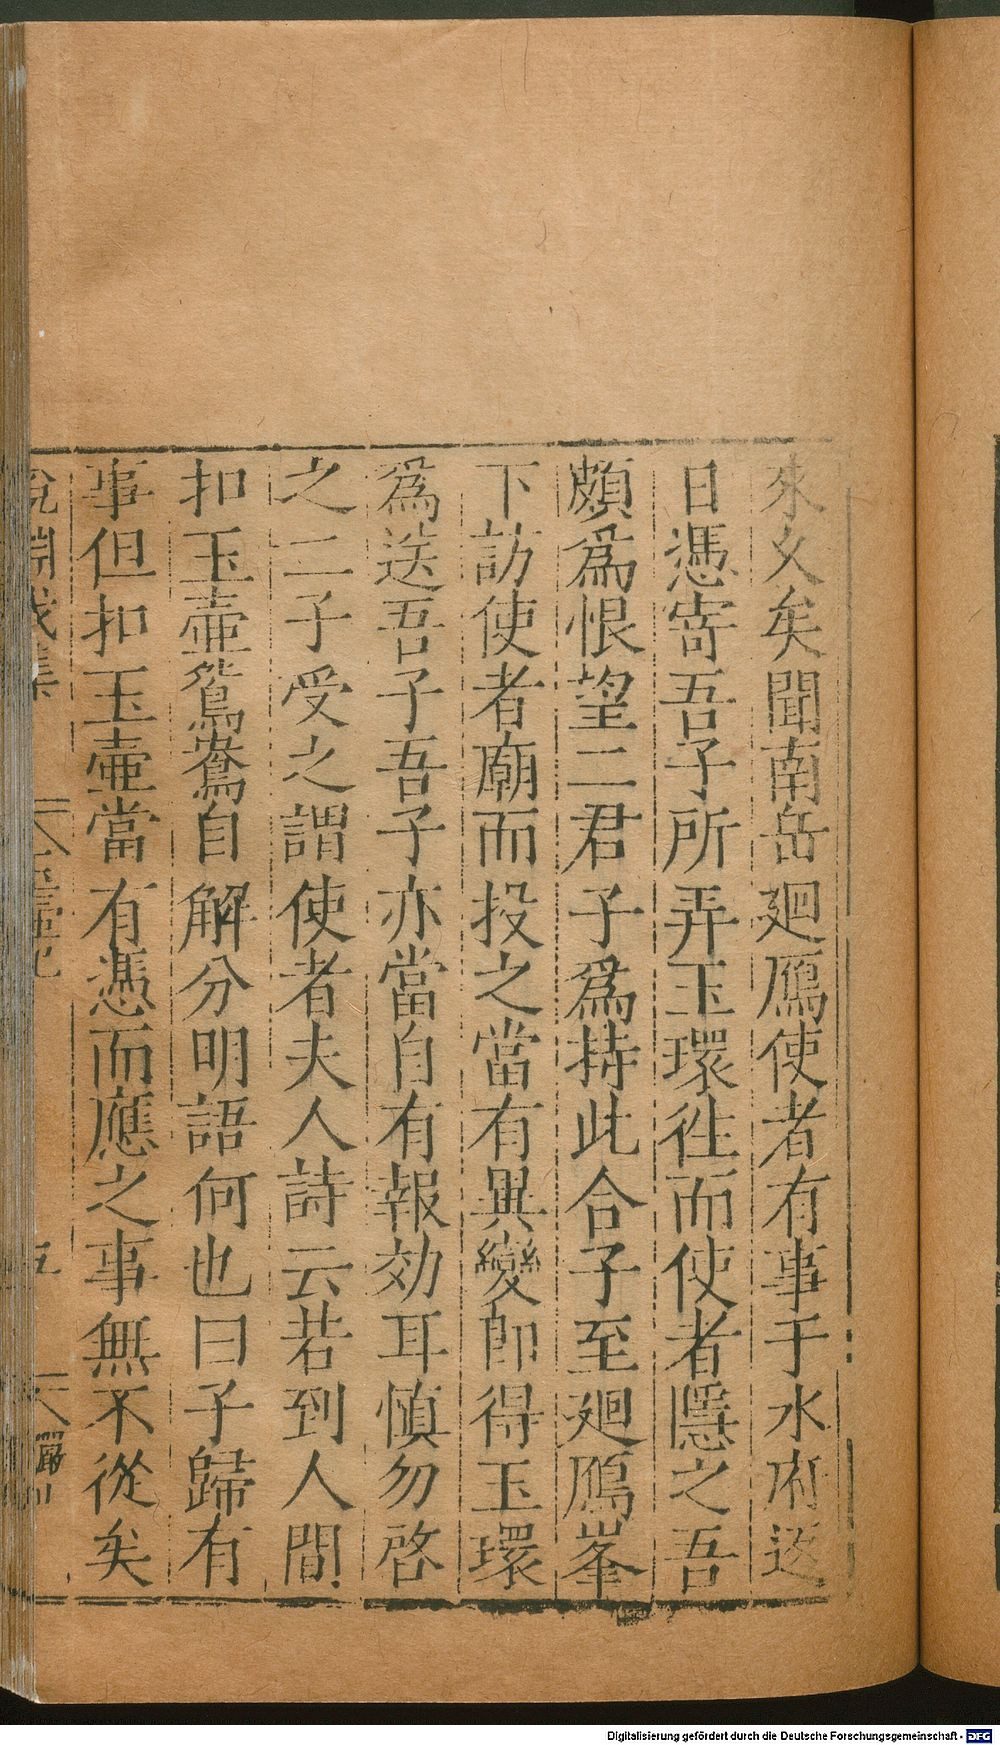 來久矣聞南岳廻鴈使者有事于水府送
日憑寄吾子所弄玉環徃而使者隱之吾
頗爲恨望二君子爲持此合子至廻鴈峯
下訪使者廟而投之當有異變即得玉環
爲送吾子吾子亦當自有報効耳慎勿啓
之二子受之謂使者夫人詩云若到人間
扣玉壷鴛鴦自解分明語何也曰子歸有
事但扣玉壷當有憑而應之事無不從矣
說淵戊集
玉壷記
五
Digitalisierung gefördert durch die Deutsche Forschungsgemeinschaft - DFG